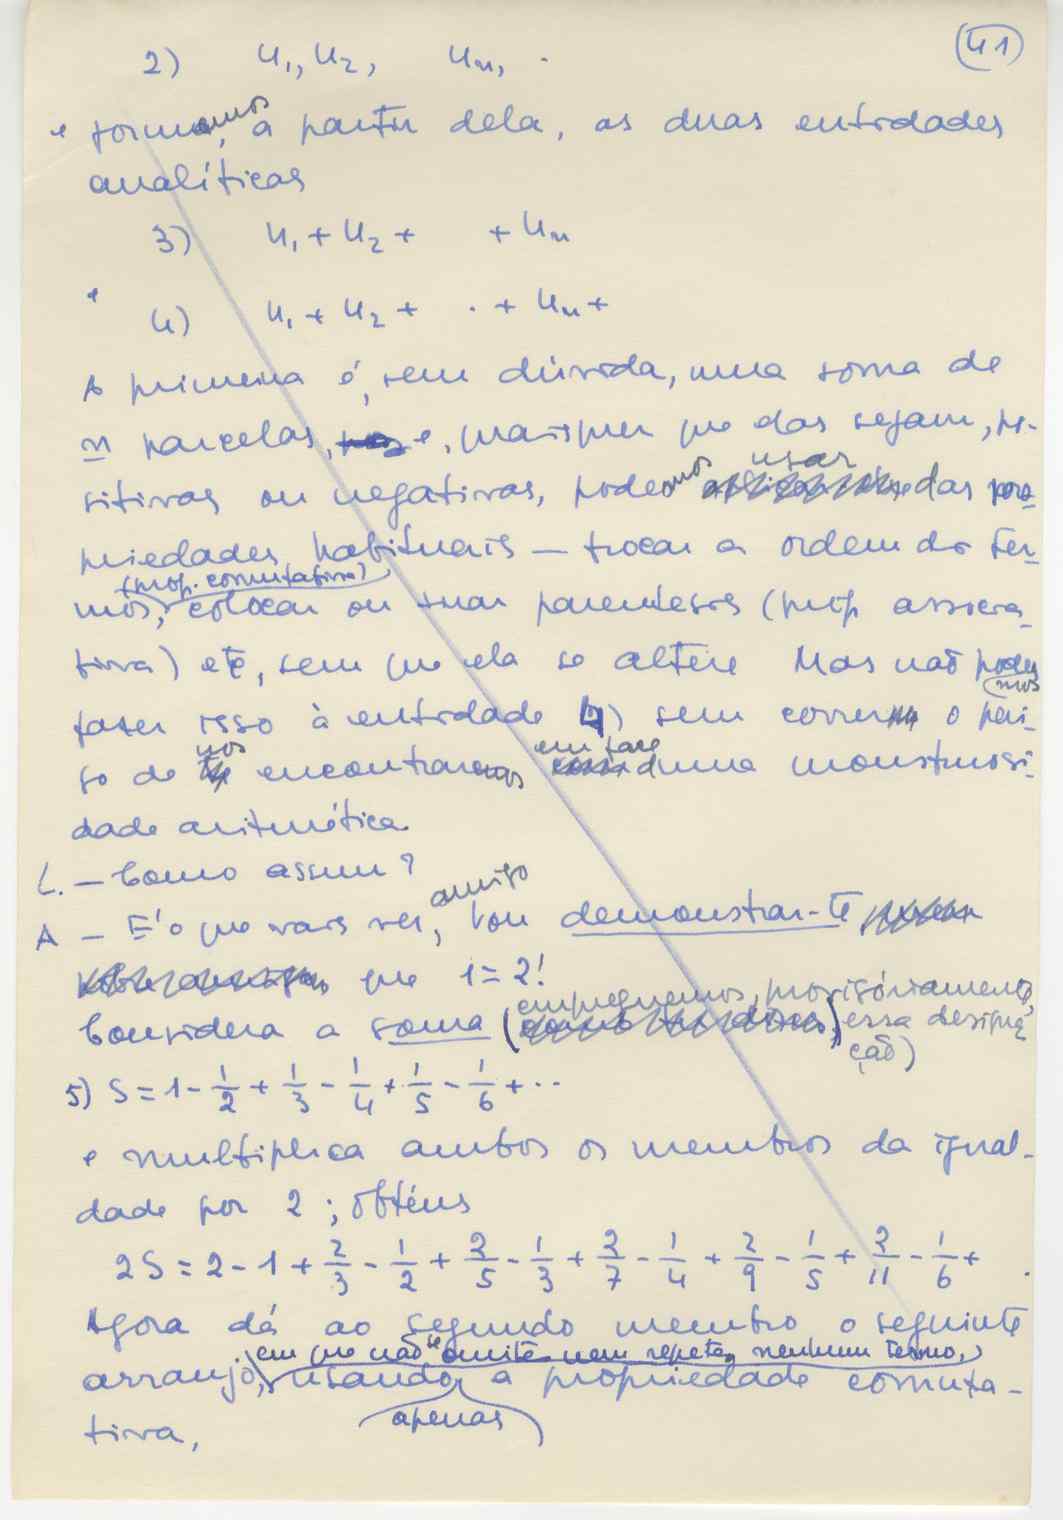 41
2) u₁, u₂, uₙ, .
e formamos, a partir dela, as duas entidades
analíticas
3) u₁ + u₂ + + uₙ
e
4) u₁ + u₂ + . + uₙ +
A primeira é, sem dúvida, uma soma de
n parcelas, e, quaisquer que elas sejam, po-
sitivas ou negativas, podemos usar das pro-
priedades habituais — trocar a ordem dos ter-
mos, (prop. comutativa) colocar ou tirar parenteses (prop associa-
tiva) etc, sem que ela se altere Mas não podemos
fazer isso à entidade 4) sem correr o peri-
go de nos encontrarmos em face duma monstruosi-
dade aritmética.
L. — Como assim?
A — É o que vais ver, amigo Vou demonstrar-te
que 1 = 2!
Considera a soma (empreguemos, provisóriamente, essa designa-
ção)
5) S = 1 - 1/2 + 1/3 - 1/4 + 1/5 - 1/6 + ...
e multiplica ambos os membros da igual-
dade por 2 ; obténs
2S = 2 - 1 + 2/3 - 1/2 + 2/5 - 1/3 + 2/7 - 1/4 + 2/9 - 1/5 + 2/11 - 1/6 + .
Agora dá ao segundo membro o seguinte
arranjo, em que não se omite nem repete nenhum termo, usando apenas a propriedade comuta-
tiva,